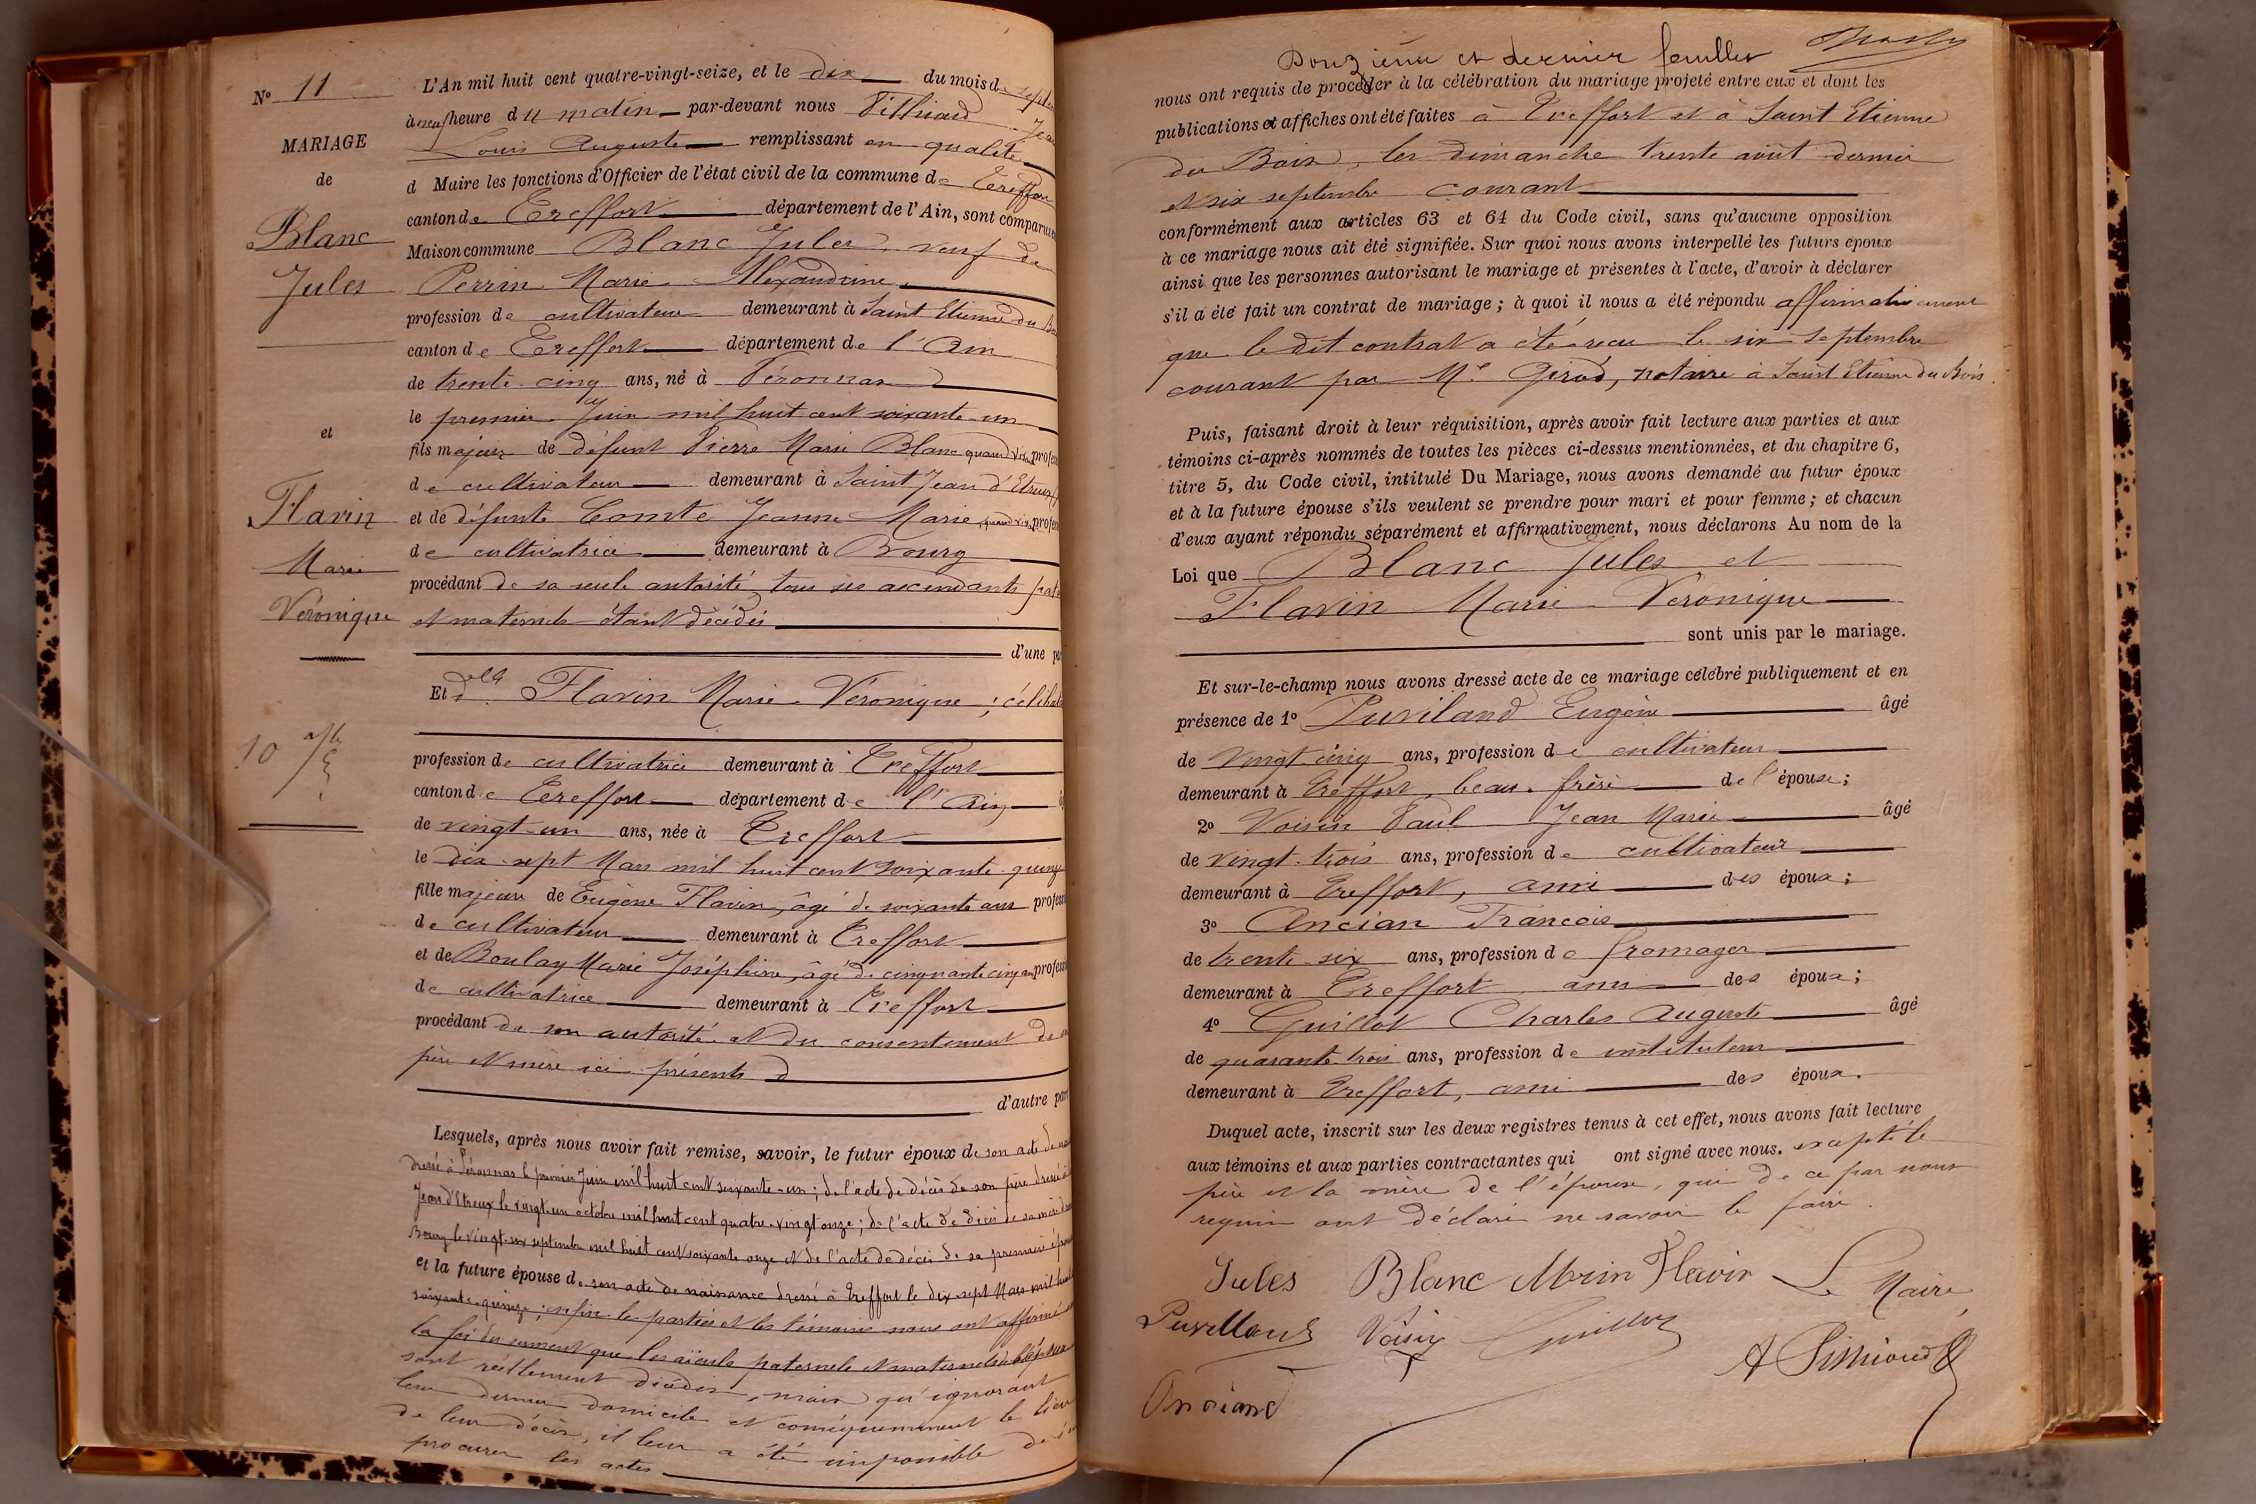 N° 11
MARIAGE
de
Blanc
Jules
et
Flavin
Marie
Véronique
10
L'An mil huit cent quatre-vingt-seize, et le dix du mois de sept
à neuf heure du matin par-devant nous Jean
Louis Auguste remplissant en qualité
d Maire les fonctions d'Officier de l'état civil de la commune de Treffort
canton de Treffort département de l'Ain, sont comparus
Maison commune Blanc Jules, veuf de
Perrin Marie Alexandrine
profession de cultivateur demeurant à Saint Etienne du Bois
canton de Treffort département de l'Ain
de trente cinq ans, né à Péronnas
le premier Juin mil huit cent soixante-un
fils majeur de défunt Pierre Marie Blanc quand viv. profess
de cultivateur demeurant à Saint Jean d'Etreux
et de défunte Comte Jeanne Marie, quand viv. profess
de cultivatrice demeurant à Bourg
procédant de sa seule autorité tous ses ascendants pat
et maternels étant décédés
d'une pa
Et dlle Flavin Marie Véronique ; céliba
profession de cultivatrice demeurant à Treffort
canton de Treffort département de l'Ain
de vingt-un ans, née à Treffort
le dix-sept Mars mil huit cent soixante quinze
fille majeure de Eugène Flavin, âgé de soixante ans profess
de cultivateur demeurant à Treffort
et de Boulay Marie Joséphine, âgé de cinquante cinq ans profess
de cultivatrice demeurant à Treffort
procédant de son autorité et du consentement de s
père et mère ici présents
d'autre part
Lesquels, après nous avoir fait remise, savoir, le futur époux de son acte de nai
dressé à Péronnas le premier Juin mil huit cent soixante-un ; de l'acte de décès de son père dressé à
Jean d'Etreux le vingt-un octobre mil huit cent quatre-vingt onze ; de l'acte de décès de sa mère dre
Bourg le vingt-six septembre mil huit cent soixante onze et de l'acte de décès de sa première épouse
et la future épouse de son acte de naissance dressé à Treffort le dix-sept Mars mil huit
soixante-quinze ; enfin les parties et les témoins nous ont affirmé
la foi du serment que les aïeuls paternels et maternels de l'époux
sont réellement décédés, mais qu'ignorant
leur dernier domicile et conséquemment le lieu
de leur décès, il leur a été impossible de s'en
procurer les actes
Douzième et dernier feuillet
nous ont requis de procéder à la célébration du mariage projeté entre eux et dont les
publications et affiches ont été faites à Treffort et à Saint Etienne
du Bois, les dimanche trente août dernier
et six septembre courant
conformément aux articles 63 et 64 du Code civil, sans qu'aucune opposition
à ce mariage nous ait été signifiée. Sur quoi nous avons interpellé les futurs époux
ainsi que les personnes autorisant le mariage et présentes à l'acte, d'avoir à déclarer
s'il a été fait un contrat de mariage ; à quoi il nous a été répondu affirmativement
que le dit contrat a été recu le six septembre
courant par Me Girod, notaire à Saint Etienne du Bois.
Puis, faisant droit à leur réquisition, après avoir fait lecture aux parties et aux
témoins ci-après nommés de toutes les pièces ci-dessus mentionnées, et du chapitre 6,
titre 5, du Code civil, intitulé Du Mariage, nous avons demandé au futur époux
et à la future épouse s'ils veulent se prendre pour mari et pour femme ; et chacun
d'eux ayant répondu séparément et affirmativement, nous déclarons Au nom de la
Loi que Blanc Jules et
Flavin Marie Véronique
sont unis par le mariage.
Et sur-le-champ nous avons dressé acte de ce mariage célébré publiquement et en
présence de 1° Puviland Eugène âgé
de vingt-cinq ans, profession de cultivateur
demeurant à Treffort, beau-frère de l'épouse ;
2° Voisin Paul Jean Marie âgé
de vingt-trois ans, profession de cultivateur
demeurant à Treffort, ami des époux ;
3° Ancian François
de trente-six ans, profession de fromager
demeurant à Treffort ami des époux ;
4° Guillot Charles Auguste âgé
de quarante trois ans, profession de instituteur
demeurant à Treffort, ami des époux.
Duquel acte, inscrit sur les deux registres tenus à cet effet, nous avons fait lecture
aux témoins et aux parties contractantes qui ont signé avec nous. excepté le
père et la mère de l'épouse, qui de ce par nous
requis ont déclaré ne savoir le faire.
Jules Blanc Flavin Le Maire,
Voisin